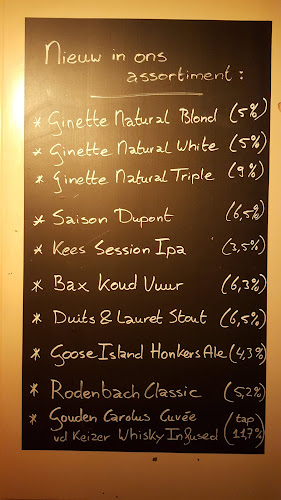 Nieuw in ons
assortiment:
* Ginette Natural Blond (5%)
* Ginette Natural White (5%)
* Ginette Natural Triple (9%)
* Saison Dupont (6,5%)
* Kees Session Ipa (3,5%)
* Bax Koud Vuur (6,3%)
* Duits & Lauret Stout (6,5%)
* Goose Island Honkers Ale (4,3%)
* Rodenbach Classic (5,2%)
* Gouden Carolus Cuvée (tap
vd Keizer Whisky Infused 11,7%)